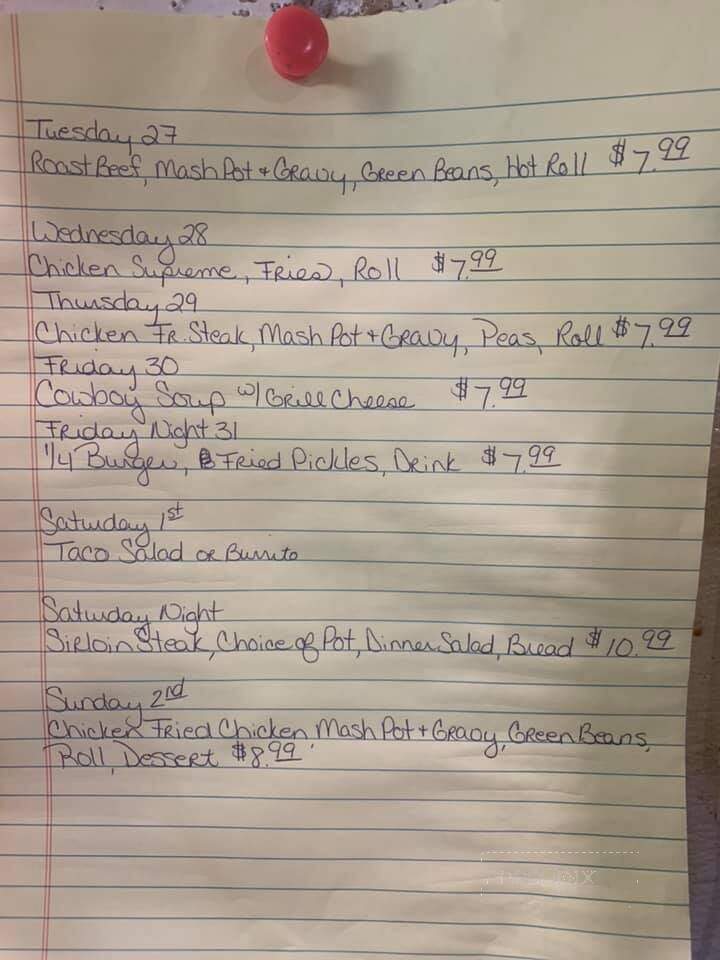 Tuesday 27
Roast Beef, Mash Pot + Gravy, Green Beans, Hot Roll $7.99
Wednesday 28
Chicken Supreme, Fries, Roll $7.99
Thursday 29
Chicken Fr. Steak, Mash Pot + Gravy, Peas, Roll $7.99
Friday 30
Cowboy Soup w/ Grill Cheese $7.99
Friday Night 31
1/4 Burger, Fried Pickles, Drink $7.99
Saturday 1st
Taco Salad or Burrito
Saturday Night
Sirloin Steak, Choice of Pot, Dinner Salad, Bread $10.99
Sunday 2nd
Chicken Fried Chicken Mash Pot + Gravy, Green Beans,
Roll, Dessert $8.99